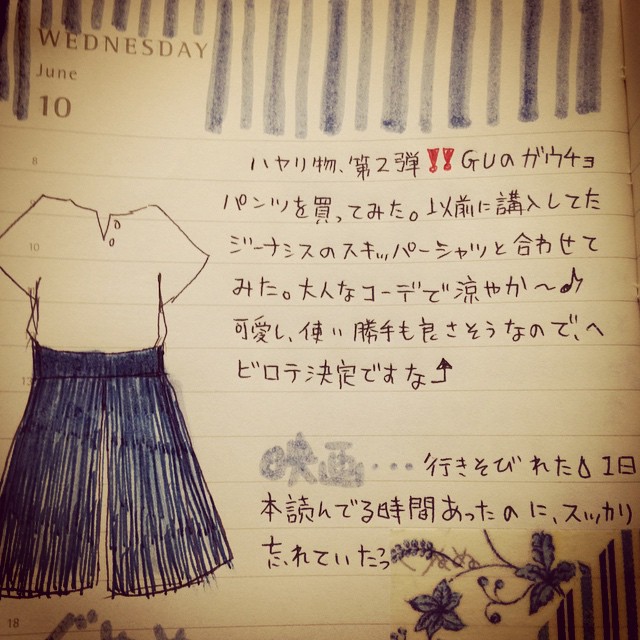 WEDNESDAY
June
10
8
ハヤリ物、第2弾‼GUのガウチョ
パンツを買ってみた。以前に購入してた
10
ジーナシスのスキッパーシャツと合わせて
みた。大人なコーデで涼やか〜♪
可愛し、使い勝手も良さそうなので、ヘ
ビロテ決定ですな⤴
映画・・・行きそびれた💧1日
本読んでる時間あったのに、スッカリ
忘れていたっ
18